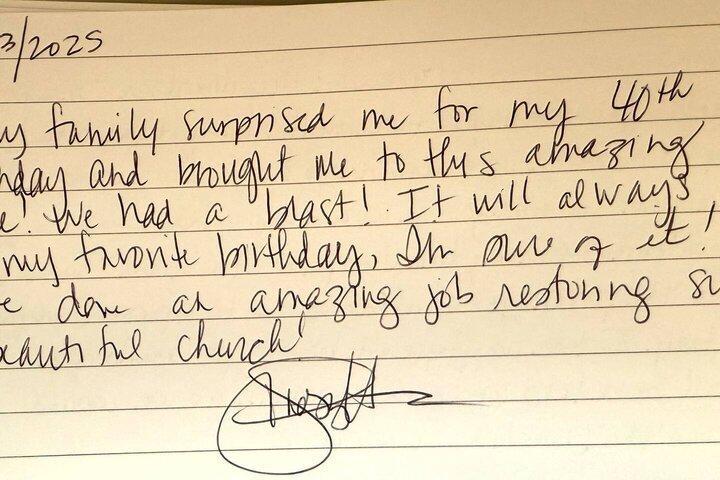 3/2025
y family surprised me for my 40th
hday and brought me to this amazing
e! We had a blast! It will always
my favorite birthday, I'm sure of it!
e done an amazing job restoring su
eautiful church!